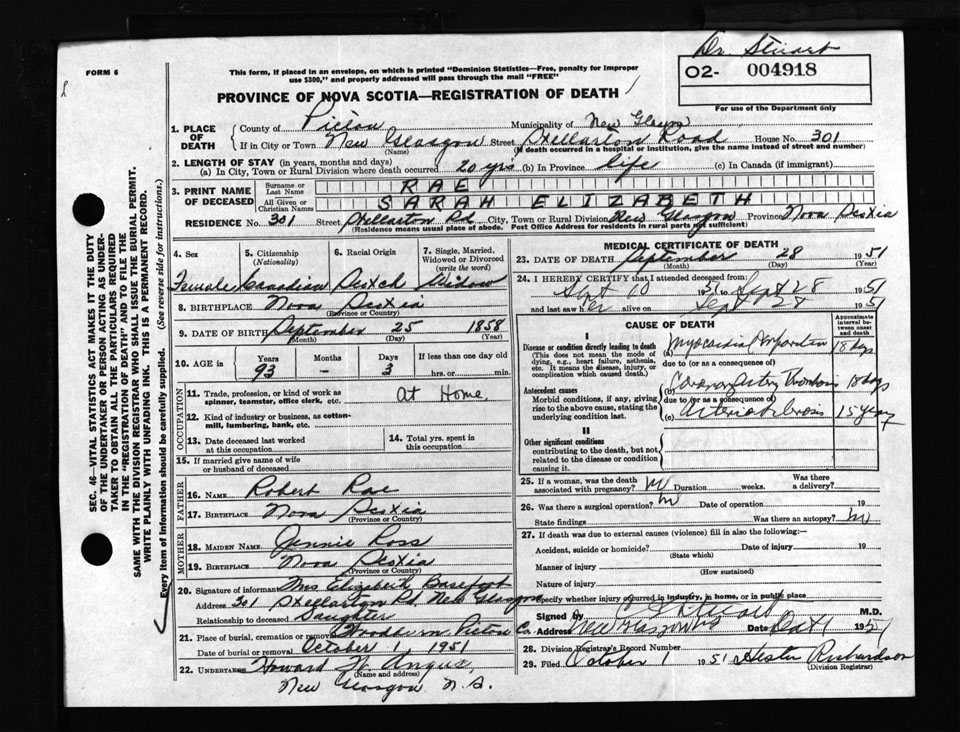 Dr. Stewart
FORM 6
This form, if placed in an envelope, on which is printed "Dominion Statistics—Free, penalty for improper
use $300," and properly addressed will pass through the mail "FREE"
O2- 004918
For use of the Department only
PROVINCE OF NOVA SCOTIA—REGISTRATION OF DEATH
1. PLACE OF DEATH
County of Pictou Municipality of New Glasgow
If in City or Town New Glasgow Street Stellarton Road House No. 301
(Name) (If death occurred in a hospital or institution, give the name instead of street and number)
2. LENGTH OF STAY (in years, months and days)
(a) In City, Town or Rural Division where death occurred 20 yrs (b) In Province life (c) In Canada (if immigrant)
3. PRINT NAME OF DECEASED
Surname or Last Name RAE
All Given or Christian Names SARAH ELIZABETH
RESIDENCE No. 301 Street Stellarton Rd City, Town or Rural Division New Glasgow Province Nova Scotia
(Residence means usual place of abode. Post Office Address for residents in rural parts not sufficient)
4. Sex Female
5. Citizenship (Nationality) Canadian
6. Racial Origin Scotch
7. Single, Married, Widowed or Divorced (write the word) Widow
8. BIRTHPLACE Nova Scotia
(Province or Country)
9. DATE OF BIRTH September 25 1858
(Month) (Day) (Year)
10. AGE in Years 93 Months - Days 3 If less than one day old hrs. or min.
OCCUPATION
11. Trade, profession, or kind of work as spinner, teamster, office clerk, etc. At Home
12. Kind of industry or business, as cotton-mill, lumbering, bank, etc.
13. Date deceased last worked at this occupation
14. Total yrs. spent in this occupation
15. If married give name of wife or husband of deceased
FATHER
16. NAME Robert Rae
17. BIRTHPLACE Nova Scotia
(Province or Country)
MOTHER
18. MAIDEN NAME Jennie Ross
19. BIRTHPLACE Nova Scotia
(Province or Country)
20. Signature of informant Mrs Elizabeth Barefoot
Address 301 Stellarton Rd, New Glasgow
Relationship to deceased Daughter
21. Place of burial, cremation or removal Woodburn Pictou Co.
Date of burial or removal October 1, 1951
22. UNDERTAKER Howard W. Angus,
(Name and address)
New Glasgow N.S.
MEDICAL CERTIFICATE OF DEATH
23. DATE OF DEATH September 28 1951
(Month) (Day) (Year)
24. I HEREBY CERTIFY that I attended deceased from
Sept 10 1951 to Sept 28 1951
and last saw her alive on Sept 28 1951
CAUSE OF DEATH
Approximate interval between onset and death
I
Disease or condition directly leading to death
(This does not mean the mode of dying, e.g., heart failure, asthenia, etc. It means the disease, injury, or complication which caused death.)
(a) Myocardial Infarction 18 days
due to (or as a consequence of)
Antecedent causes
Morbid conditions, if any, giving rise to the above cause, stating the underlying condition last.
(b) Coronary Artery Thrombosis 18 days
due to (or as a consequence of)
(c) Arteriosclerosis 15 years
II
Other significant conditions contributing to the death, but not related to the disease or condition causing it.
25. If a woman, was the death associated with pregnancy? No Duration weeks. Was there a delivery?
26. Was there a surgical operation? No Date of operation 19
State findings Was there an autopsy? No
27. If death was due to external causes (violence) fill in also the following:—
Accident, suicide or homicide? Date of injury 19
(State which)
Manner of injury
(How sustained)
Nature of injury
Specify whether injury occurred in industry, in home, or in public place
Signed by Stewart M.D.
Address New Glasgow NS Date Oct 1 1951
28. Division Registrar's Record Number
29. Filed October 1 1951 Hester Richardson
(Division Registrar)
SEC. 46—VITAL STATISTICS ACT MAKES IT THE DUTY
OF THE UNDERTAKER OR PERSON ACTING AS UNDER-
TAKER TO OBTAIN ALL THE PARTICULARS REQUIRED
IN THE "REGISTRATION OF DEATH" AND TO FILE THE
SAME WITH THE DIVISION REGISTRAR WHO SHALL ISSUE THE BURIAL PERMIT.
WRITE PLAINLY WITH UNFADING INK. THIS IS A PERMANENT RECORD.
Every item of information should be carefully supplied. (See reverse side for instructions.)